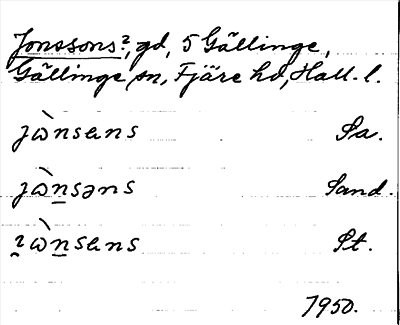 Jonssons?, gd, 5 Gällinge,
Gällinge sn, Fjäre hd, Hall. l.
jὼnsens Sa.
jὼn̲səns Sand.
ɿὼn̲sens St.
1950.